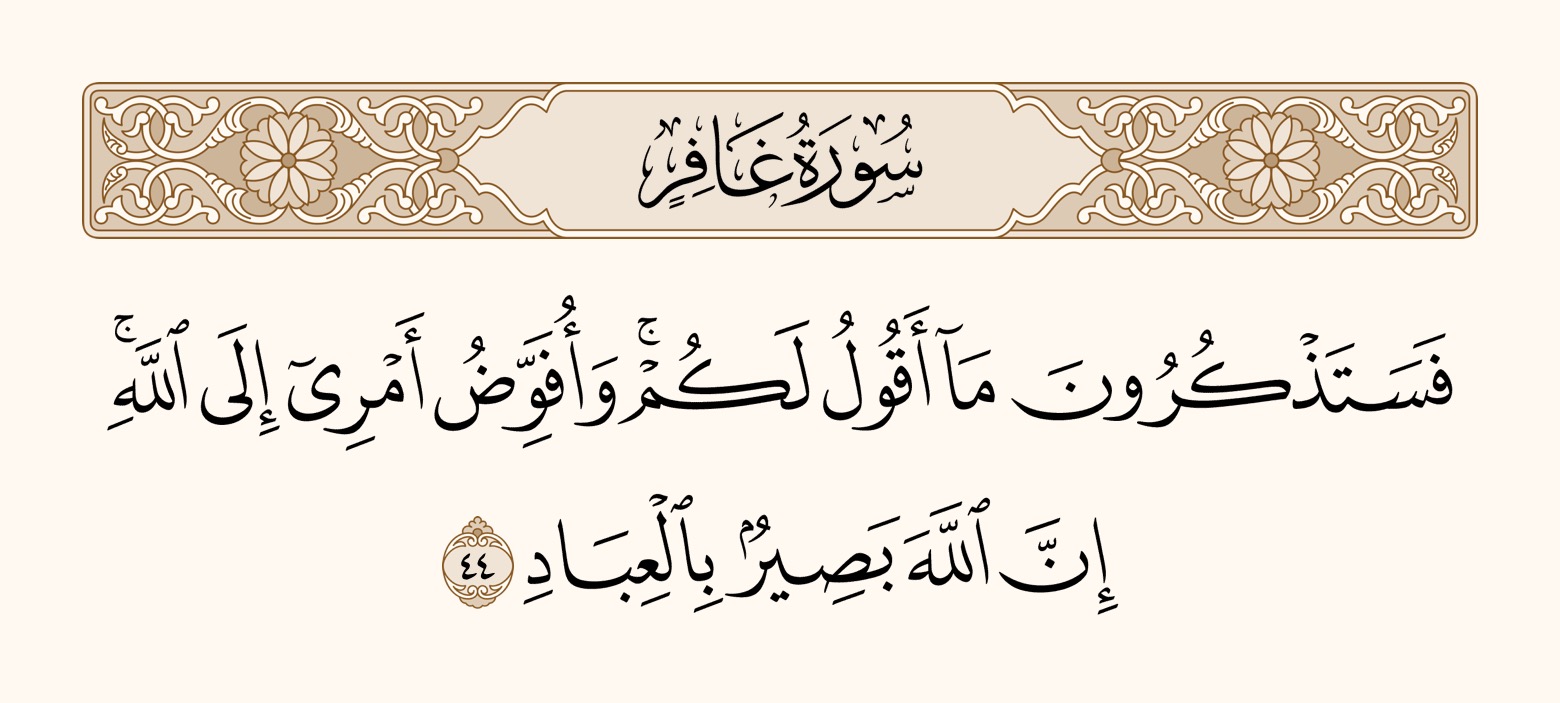 سُورَةُ غَافِرٍ
فَسَتَذْكُرُونَ مَآ أَقُولُ لَكُمْ ۚ وَأُفَوِّضُ أَمْرِىٓ إِلَى ٱللَّهِ ۚ
إِنَّ ٱللَّهَ بَصِيرٌۢ بِٱلْعِبَادِ ٤٤